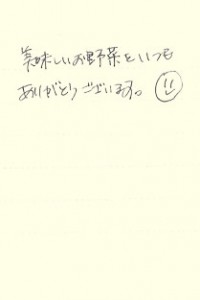 美味しいお野菜をいつも
ありがとうございます。